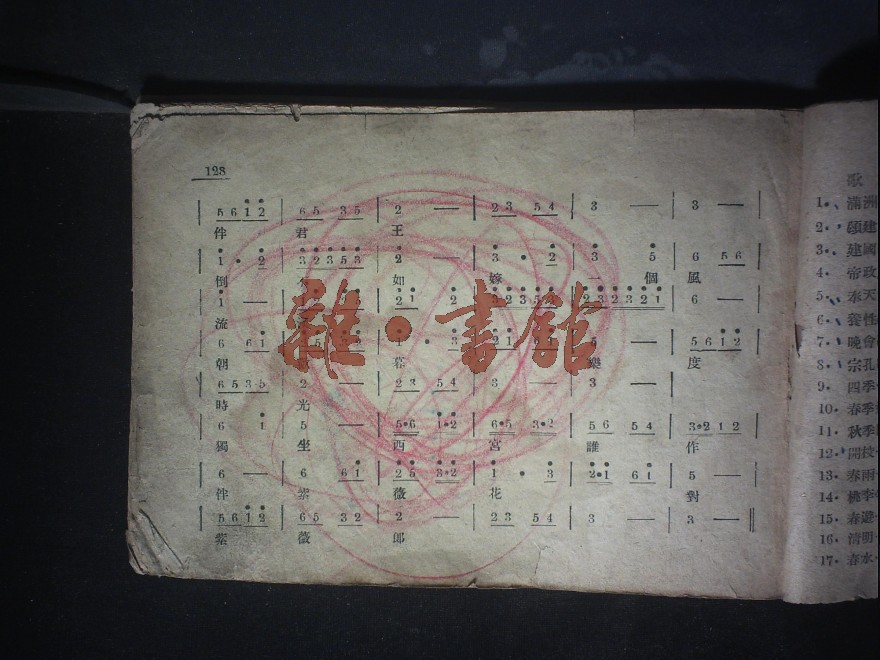 128
5 6 1 2 | 6 5 3 5 | 2 — | 2 3 5 4 | 3 — | 3 — |
伴 君 王
1 · 2 | 3 2 3 5 3 | 2 — | 3 · 2 | 3 5 | 6 5 6
倒 不 如 嫁 一 個 風
1 — | 2 1 2 | 3 2 3 5 3 | 2 3 2 3 2 1 | 6 —
流
6 6 1 | 3 | 2 1 | 5 — | 5 6 1 2
朝 暮 樂 度
6 5 3·5 | 2 — | 2 3 5 4 | 3 — | 3 —
時 光
6 1 | 5 — | 5·6 1·2 | 6·5 3·2 | 5 6 5 4 | 3·2 1 2
獨 坐 西 宮 誰 作
6 — | 6 6 1 | 2·5 3·2 | 1 · 3 | 2·1 6 1 | 5 —
伴 紫 薇 花 對
5 6 1 2 | 6 5 3 2 | 2 — | 2 3 5 4 | 3 — | 3 — ‖
紫 薇 郎
雜·書館
歌
1. 滿洲
2. 建
3. 建國
4. 帝政
5. 奉天
6. 養性
7. 晚會
8. 宗孔
9. 四季
10. 春季
11. 秋季
12. 開校
13. 春雨
14. 桃李
15. 春遊
16. 清明
17. 春水